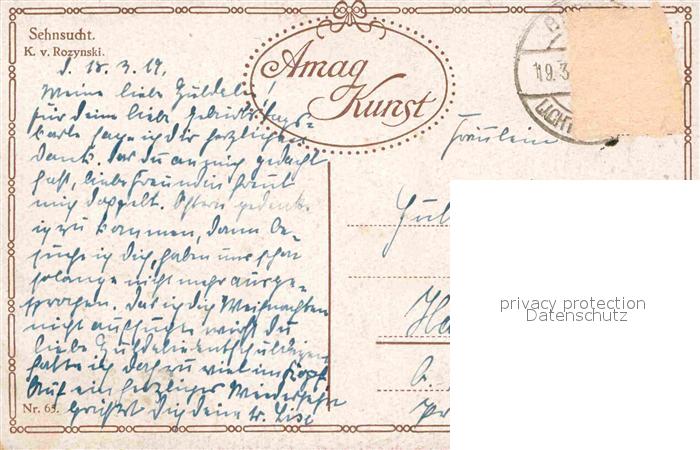 Sehnsucht.
K. v. Rozynski.
Amag
Kunst
d. 18. 3. 19.
Meine liebe Huldele!
für deine liebe Geburtstags-
karte sage ich dir herzlichen
Dank. Das du an mich gedacht
hast, liebe Freundin freut
mich doppelt. Ostern gedenk
ich zu kommen, dann be-
suche ich dich, haben uns schon
solange nicht mehr ausge-
sprochen. Das ich dich Weihnachten
nicht aufsuchte wirst du
liebe entschuldigen
hatte ich doch zu viel im Kopf.
Auf ein herzliches Wiedersehn
grüßt dich deine tr. Lisa
Nr. 63.
19.3
LICHT
Fräulein
privacy protection
Datenschutz